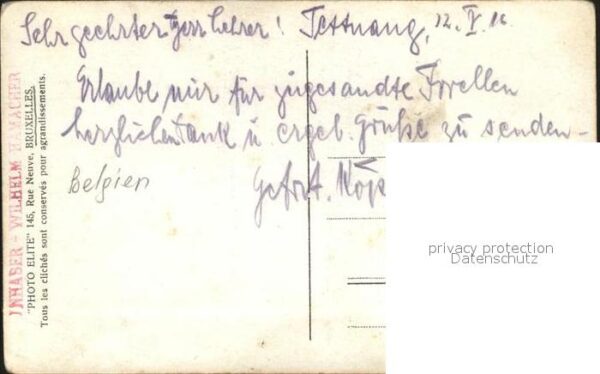 Sehr geehrter Herr Lehrer! Tettnang, 12. V. 16
Erlaube mir für zugesandte Forellen
herzlichen Dank u ergeb. Grüße zu senden -
Gefrt.
Belgien
INHABER - WILHELM
"PHOTO ELITE" 145, Rue Neuve, BRUXELLES.
Tous les clichés sont conservés pour agrandissements.
privacy protection
Datenschutz